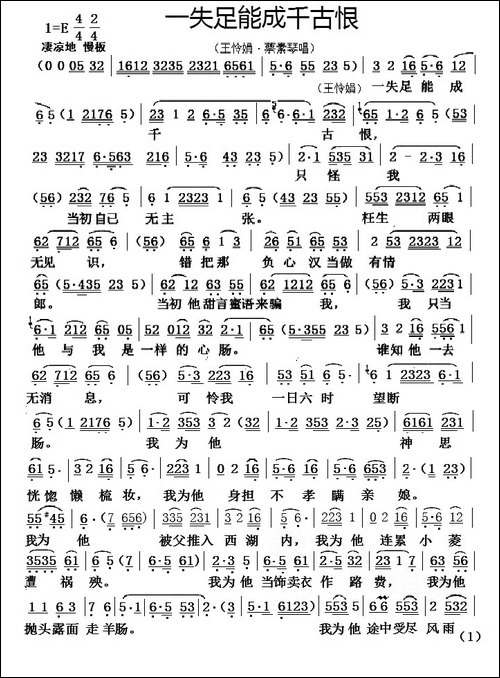 一失足能成千古恨
1=E 4/4 2/4
凄凉地 慢板
(王怜娟·蔡素琴唱)
(0 0 05 32 | 1612 3235 2321 6561 | 5·6 43 23 55) | 3 2 16 5·6 12
(王怜娟) 一失足 能 成
6 5 (1 2176 5) | 23 1 2 6·5 35 1 | 6 6·6·1 232 | 65 1·2 6 5 (53
千 古 恨,
23 3217 6·563 | 216 | 5·6 43 23 5) | 2·1 535 31 | 2 - 2·3 16
只 怪 我
(56) 232 76 5 | 6 1 2323 1 | 6 5 (43 23 55) | 553 2312 65 1
当初自己 无主 张。 枉生 两眼
62 712 65 6 | (56) 2·2 65 6 1 3 | 26 51 65 5 | 2 53 2323 32
无见 识, 错把那 负心 汉当做 有情
65 (5·435 23 5) | 3 2 12 63 56 | 55 62 1212 65 6 | (56) 5·3 2231
郎。 当初他甜言蜜语来骗 我, 我 只当
6·1 212 65 05 | 52 012 32 2 | 6·1 232 165 | 65 (5·355 23 5) | 3 2 16 556 1
他 与 我 是一样的心 肠。 谁知他一去
62 712 65 6 | (56) 5·3 223 16 | 1 53 2 35 21 | 12 323 4·32
无消 息, 可 怜我 一日六时 望断
6 5 (1 2176 5) | 1 53 353 3 2 (32 | 1·2 353 2·3 25) | 6161 231
肠。 我 为 他 神 思
61 5· | 3·5 32 | 1 5· | 5·6 223 | 0 2 16 | 5·2 3 | 5·6 653 | 5 5·
恍惚 懒 梳 妆, 我为他 身担 不 孝 瞒 亲 娘。
我为 他 被父推入 西 湖 内, 我为 他 连累 小 菱
遭 祸 殃。 我为 他 当饰卖衣 作 路 费, 我为他
1 1 6 3 | 7 6 · | 5·1 | 6·5 53 | 2 (3 | 5·1 6123) | 553 5 | 6 6 553 | 2 532
抛头露面 走 羊肠。 我为 他 途中受尽 风雨
(1)